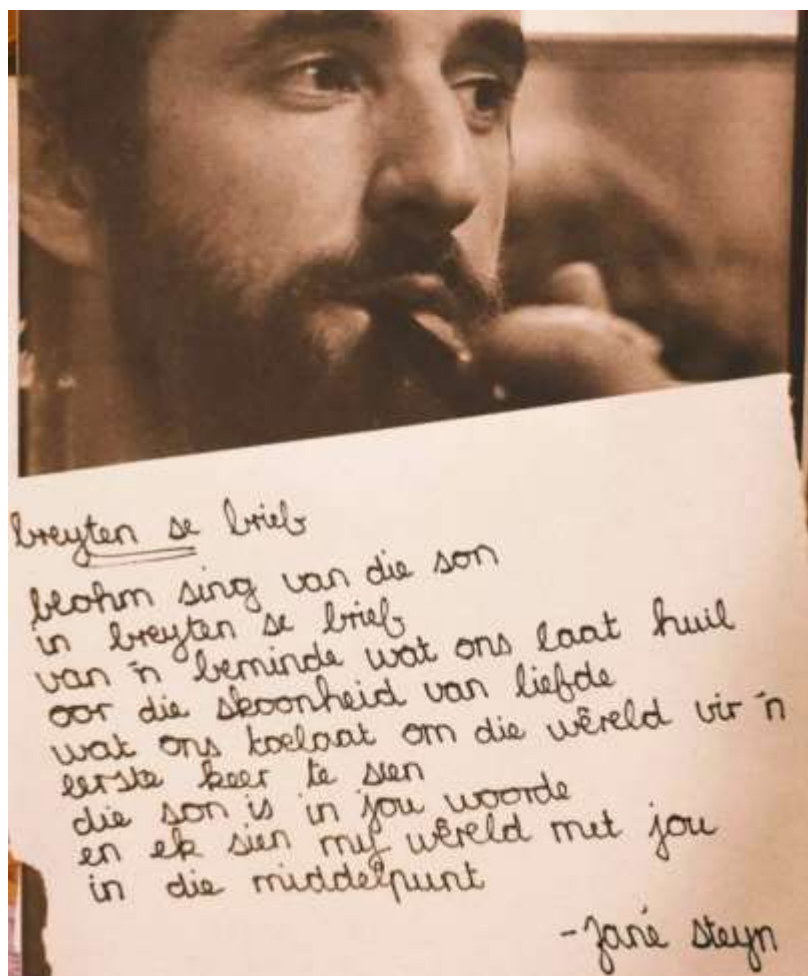 breyten se brief
blohm sing van die son
in breyten se brief
van 'n beminde wat ons laat huil
oor die skoonheid van liefde
wat ons toelaat om die wêreld vir 'n
eerste keer te sien
die son is in jou woorde
en ek sien my wêreld met jou
in die middelpunt
-Jané Steyn